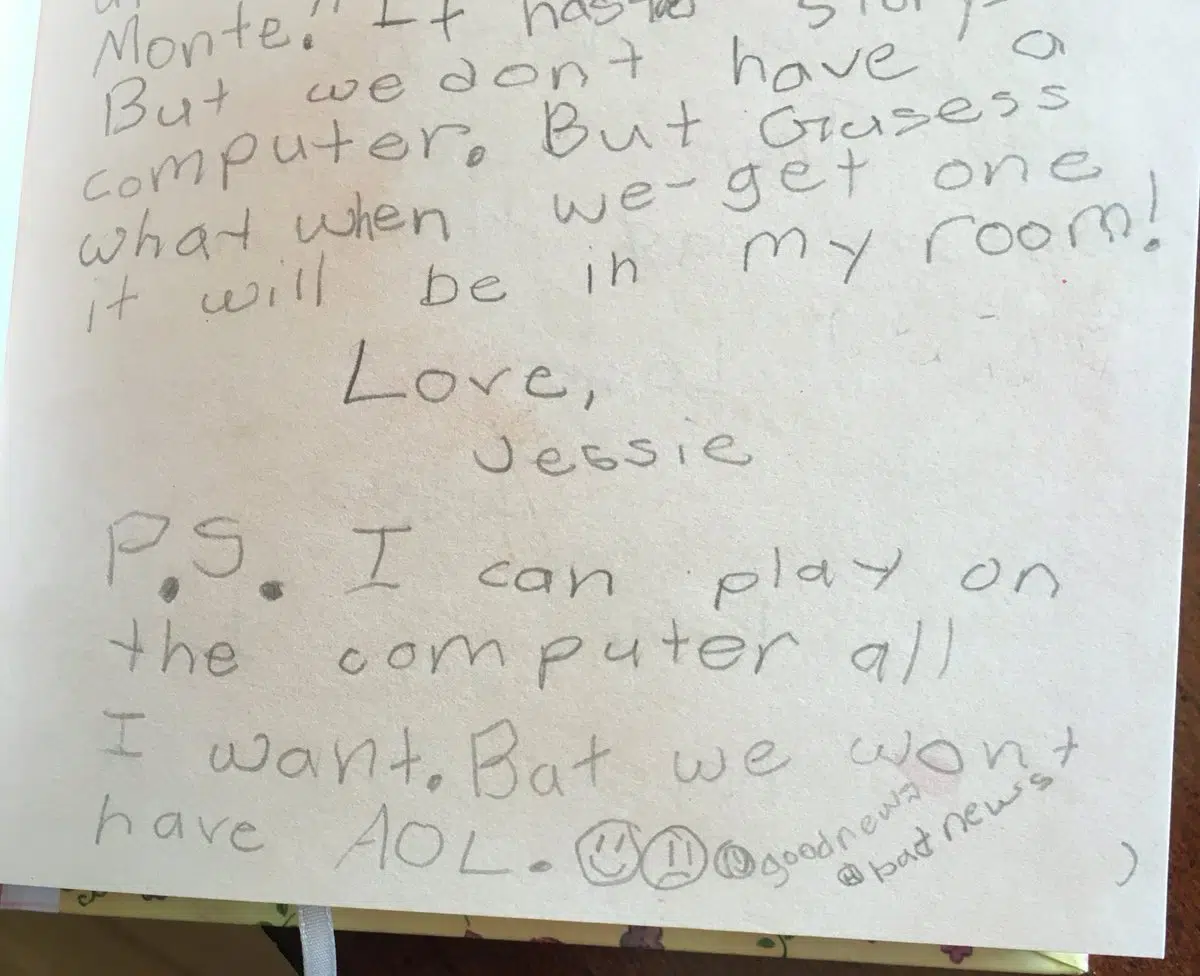 Monte." It has
But we dont have a
computer. But Gusess
what when we-get one
it will be in my room!
Love,
Jessie
P.S. I can play on
the computer all
I want. Bat we wont
have AOL.
goodnews
bad news